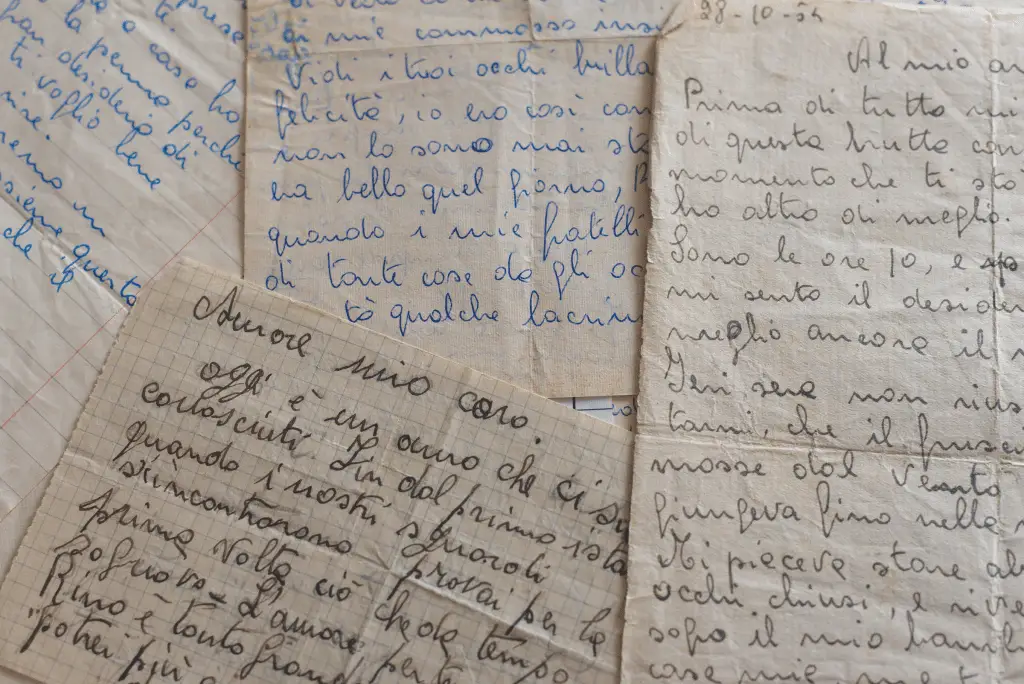 prese
o caso ho
la penna perché
gran desiderio di
ti voglio bene
in
assieme questo
che il
di mie commosso mai
Vidi i tuoi occhi brilla
felicità, io ero così con
non lo sono mai sta
era bello quel giorno,
quando i miei fratelli
di tante cose da gli oc
tò qualche lacrim
28-10-54
Al mio am
Prima di tutto mi
di questa brutta car
momento che ti sto
ho altro di meglio.
Sono le ore 10, e
mi sento il desider
meglio ancora il
Ieri sera non rius
tarmi, che il frusci
mosse dal vento
giungeva fino nella
Mi piaceva stare
occhi chiusi, e rive
sopo il mio
case mie me t
Amore mio caro.
oggi è un anno che ci si
conosciuti. Fin dal primo ista
quando i nostri sguardi
s'incontrarono provai per la
prima volta ciò che da tempo
sognavo. L'amore, per te
Rino è tanto grand
"potrei più